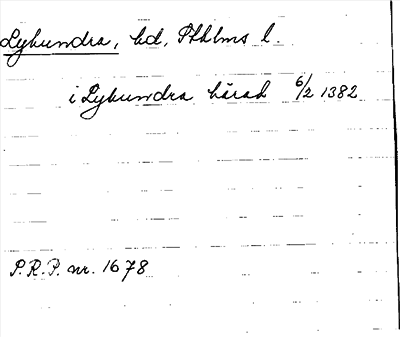 Lyhundra, hd, Sthlms l.
i Lyhundra härad 6/2 1382
P.R.P. nr. 1678